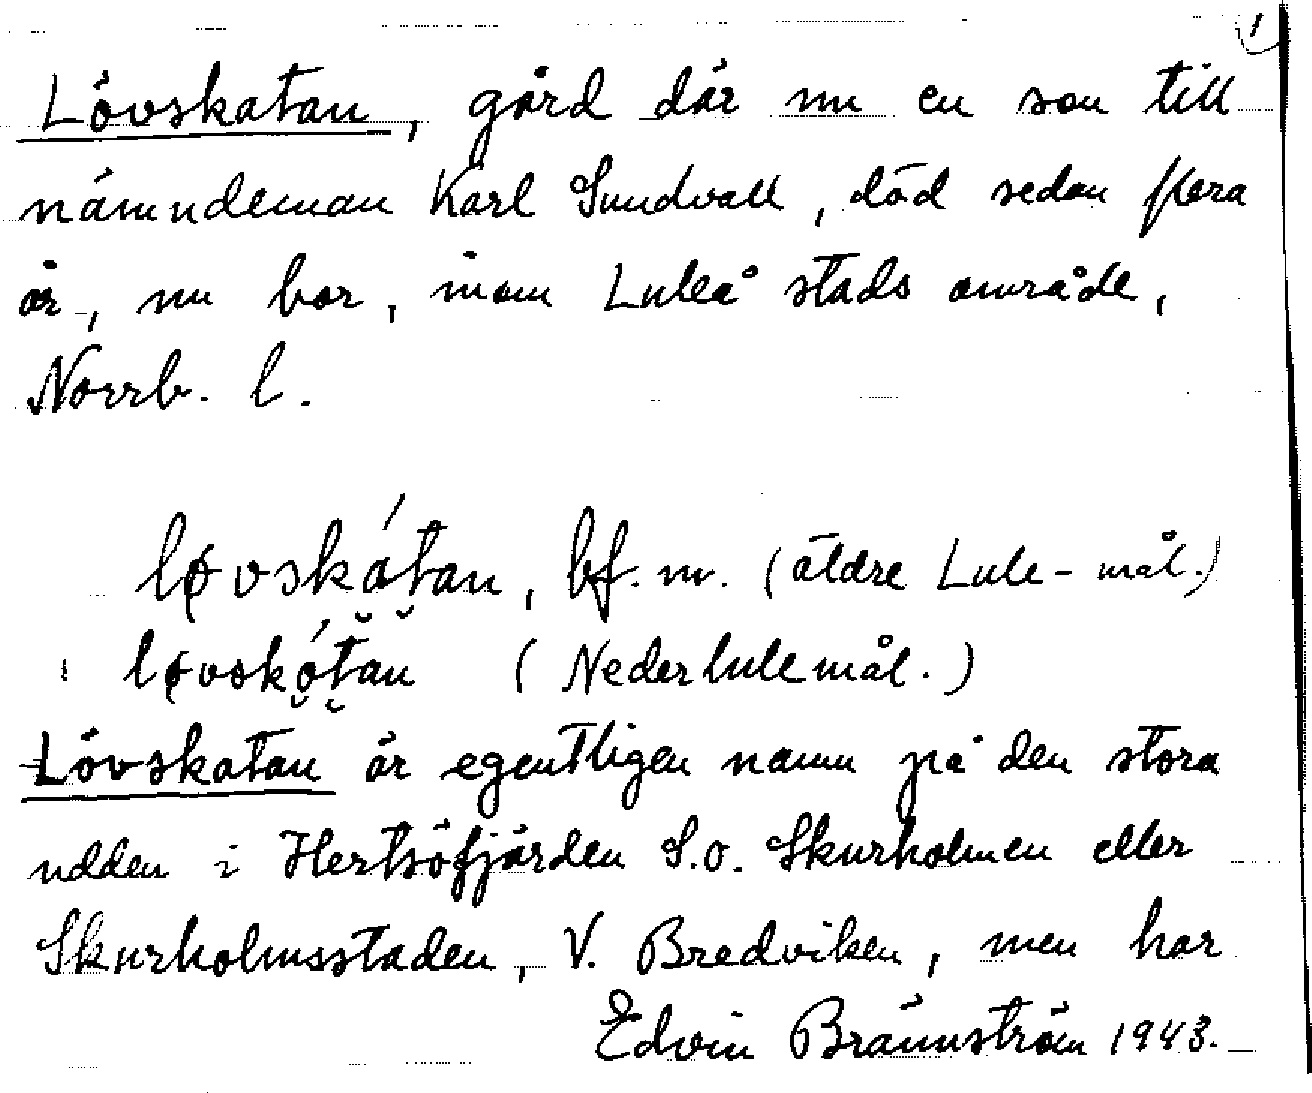 1
Lövskatan, gård där nu en son till
nämndeman Karl Sundvall, död sedan flera
år, nu bor, inom Luleå stads område,
Norrb. l.
løvskátan, bf. m. (äldre Lule-mål.)
løvskótan (Nederlulemål.)
Lövskatan är egentligen namn på den stora
udden i Hertsöfjärden S.O. Skurholmen eller
Skurholmsstaden, V. Bredviken, men har
Edvin Brännström 1943.